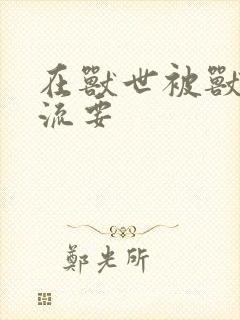 在獸世被獸
流要
鄭光所